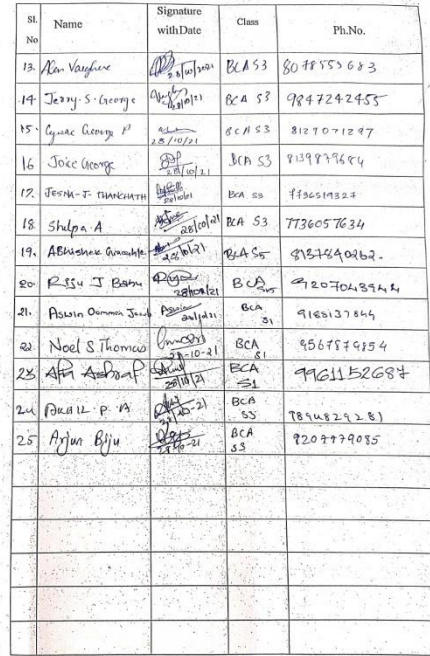 Sl. No Name Signature with Date Class Ph.No.
13. Alen Varghese 28/10/2021 BCA S3 8078553683
14. Jerry. S. George 28/10/21 BCA S3 9847242455
15. George P 28/10/21 BCA S3 8129071297
16 Joice George 28/10/21 BCA S3 8139879684
17. JESNA-J- THANKHATH 28/10/21 BCA S3 7736519327
18. Shilpa. A 28/10/21 BCA S3 7736057634
19. ABhishek 28/10/21 BCA S5 8137840262.
20. Riju J Babu 28/10/21 BCA S5 9207043944
21. Aswin Oommen Jacob Aswin 28/10/21 BCA S1 9188137844
22. Noel S Thomas 28-10-21 BCA S1 9567879854
23 Ashraf 28/10/21 BCA S1 9961152687
24 P. A 28/10-21 BCA S3 7894829281
25. Arjun Biju 28-10-21 BCA S3 9207779085